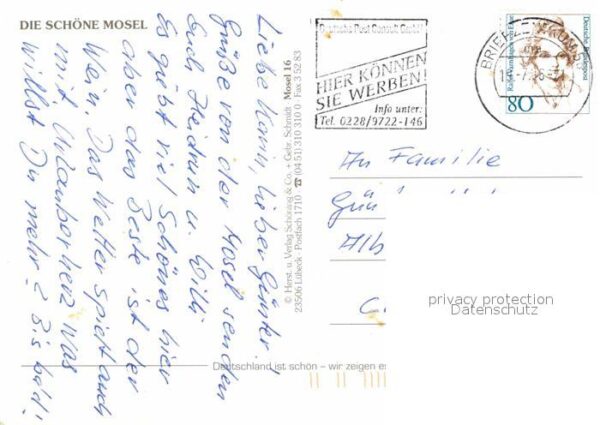 DIE SCHÖNE MOSEL
Liebe Karin, lieber Günter!
Grüße von der Mosel senden
Euch Heidrun u. Willi
Es gibt viel Schönes hier
aber das Beste ist der
Wein. Das Wetter spielt auch
mit Urlauberherz was
willst Du mehr? Bis bald!
© Herst. u. Verlag Schöning & Co. + Gebr. Schmidt Mosel 16
23506 Lübeck · Postfach 1710 ☎ (04 51) 310 310 0 · Fax 3 52 83
Deutsche Post Consult GmbH
HIER KÖNNEN
SIE WERBEN!
Info unter:
Tel. 0228/9722-146
BRIEFZENTRUM
Deutsche Bundespost
Rahel Varnhagen von Ense
80
An Familie
Gün
Alb
privacy protection
Datenschutz
Deutschland ist schön – wir zeigen es